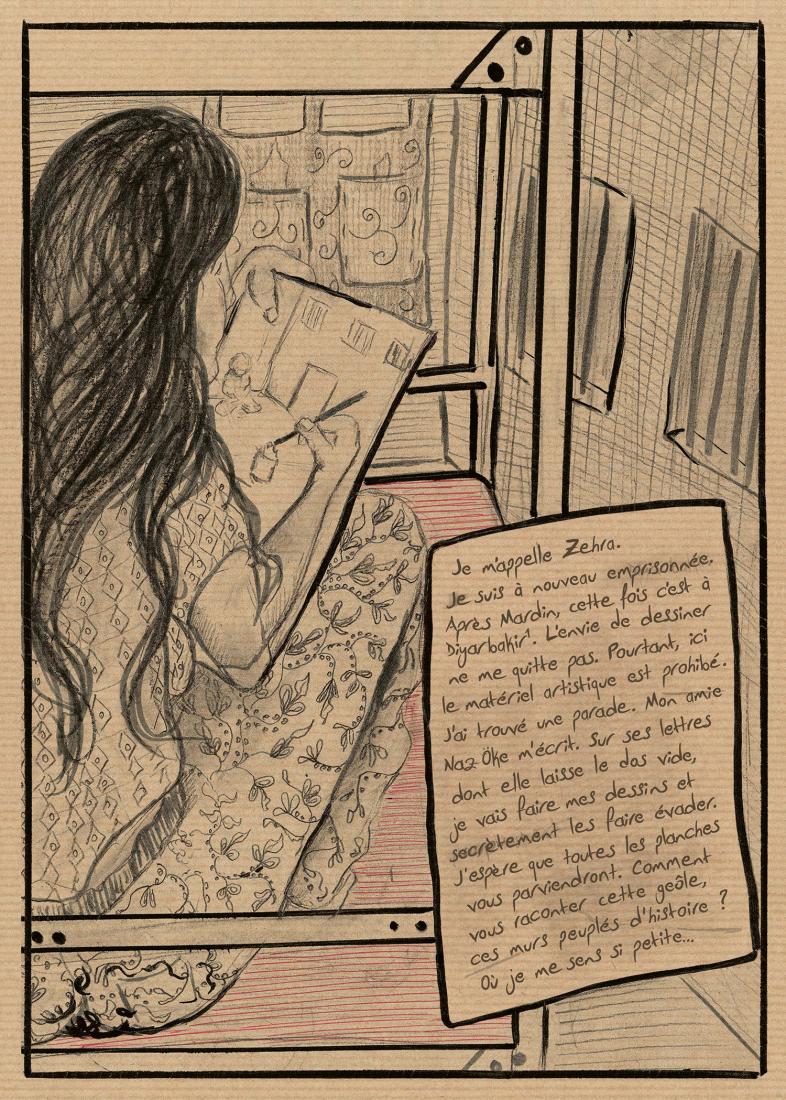 Je m'appelle Zehra.
Je suis à nouveau emprisonnée.
Après Mardin, cette fois c'est à
Diyarbakir¹. L'envie de dessiner
ne me quitte pas. Pourtant, ici
le matériel artistique est prohibé.
J'ai trouvé une parade. Mon amie
Naz Öke m'écrit. Sur ses lettres
dont elle laisse le dos vide,
je vais faire mes dessins et
secrètement les faire évader.
J'espère que toutes les planches
vous parviendront. Comment
vous raconter cette geôle,
ces murs peuplés d'histoire ?
Où je me sens si petite...